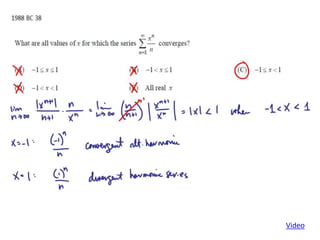 1988 BC 38
What are all values of x for which the series ∑_{n=1}^{∞} x^n/n converges?
(A) −1 ≤ x ≤ 1 (B) −1 < x ≤ 1 (C) −1 ≤ x < 1
(D) −1 < x < 1 (E) All real x
lim_{n→∞} |x^{n+1}|/(n+1) · n/x^n = lim_{n→∞} (n/(n+1))^1 |x^{n+1}/x^n| = |x| < 1 when −1 < x < 1
x=-1: (-1)^n/n convergent alt. harmonic
x=1: (1)^n/n divergent harmonic series
Video